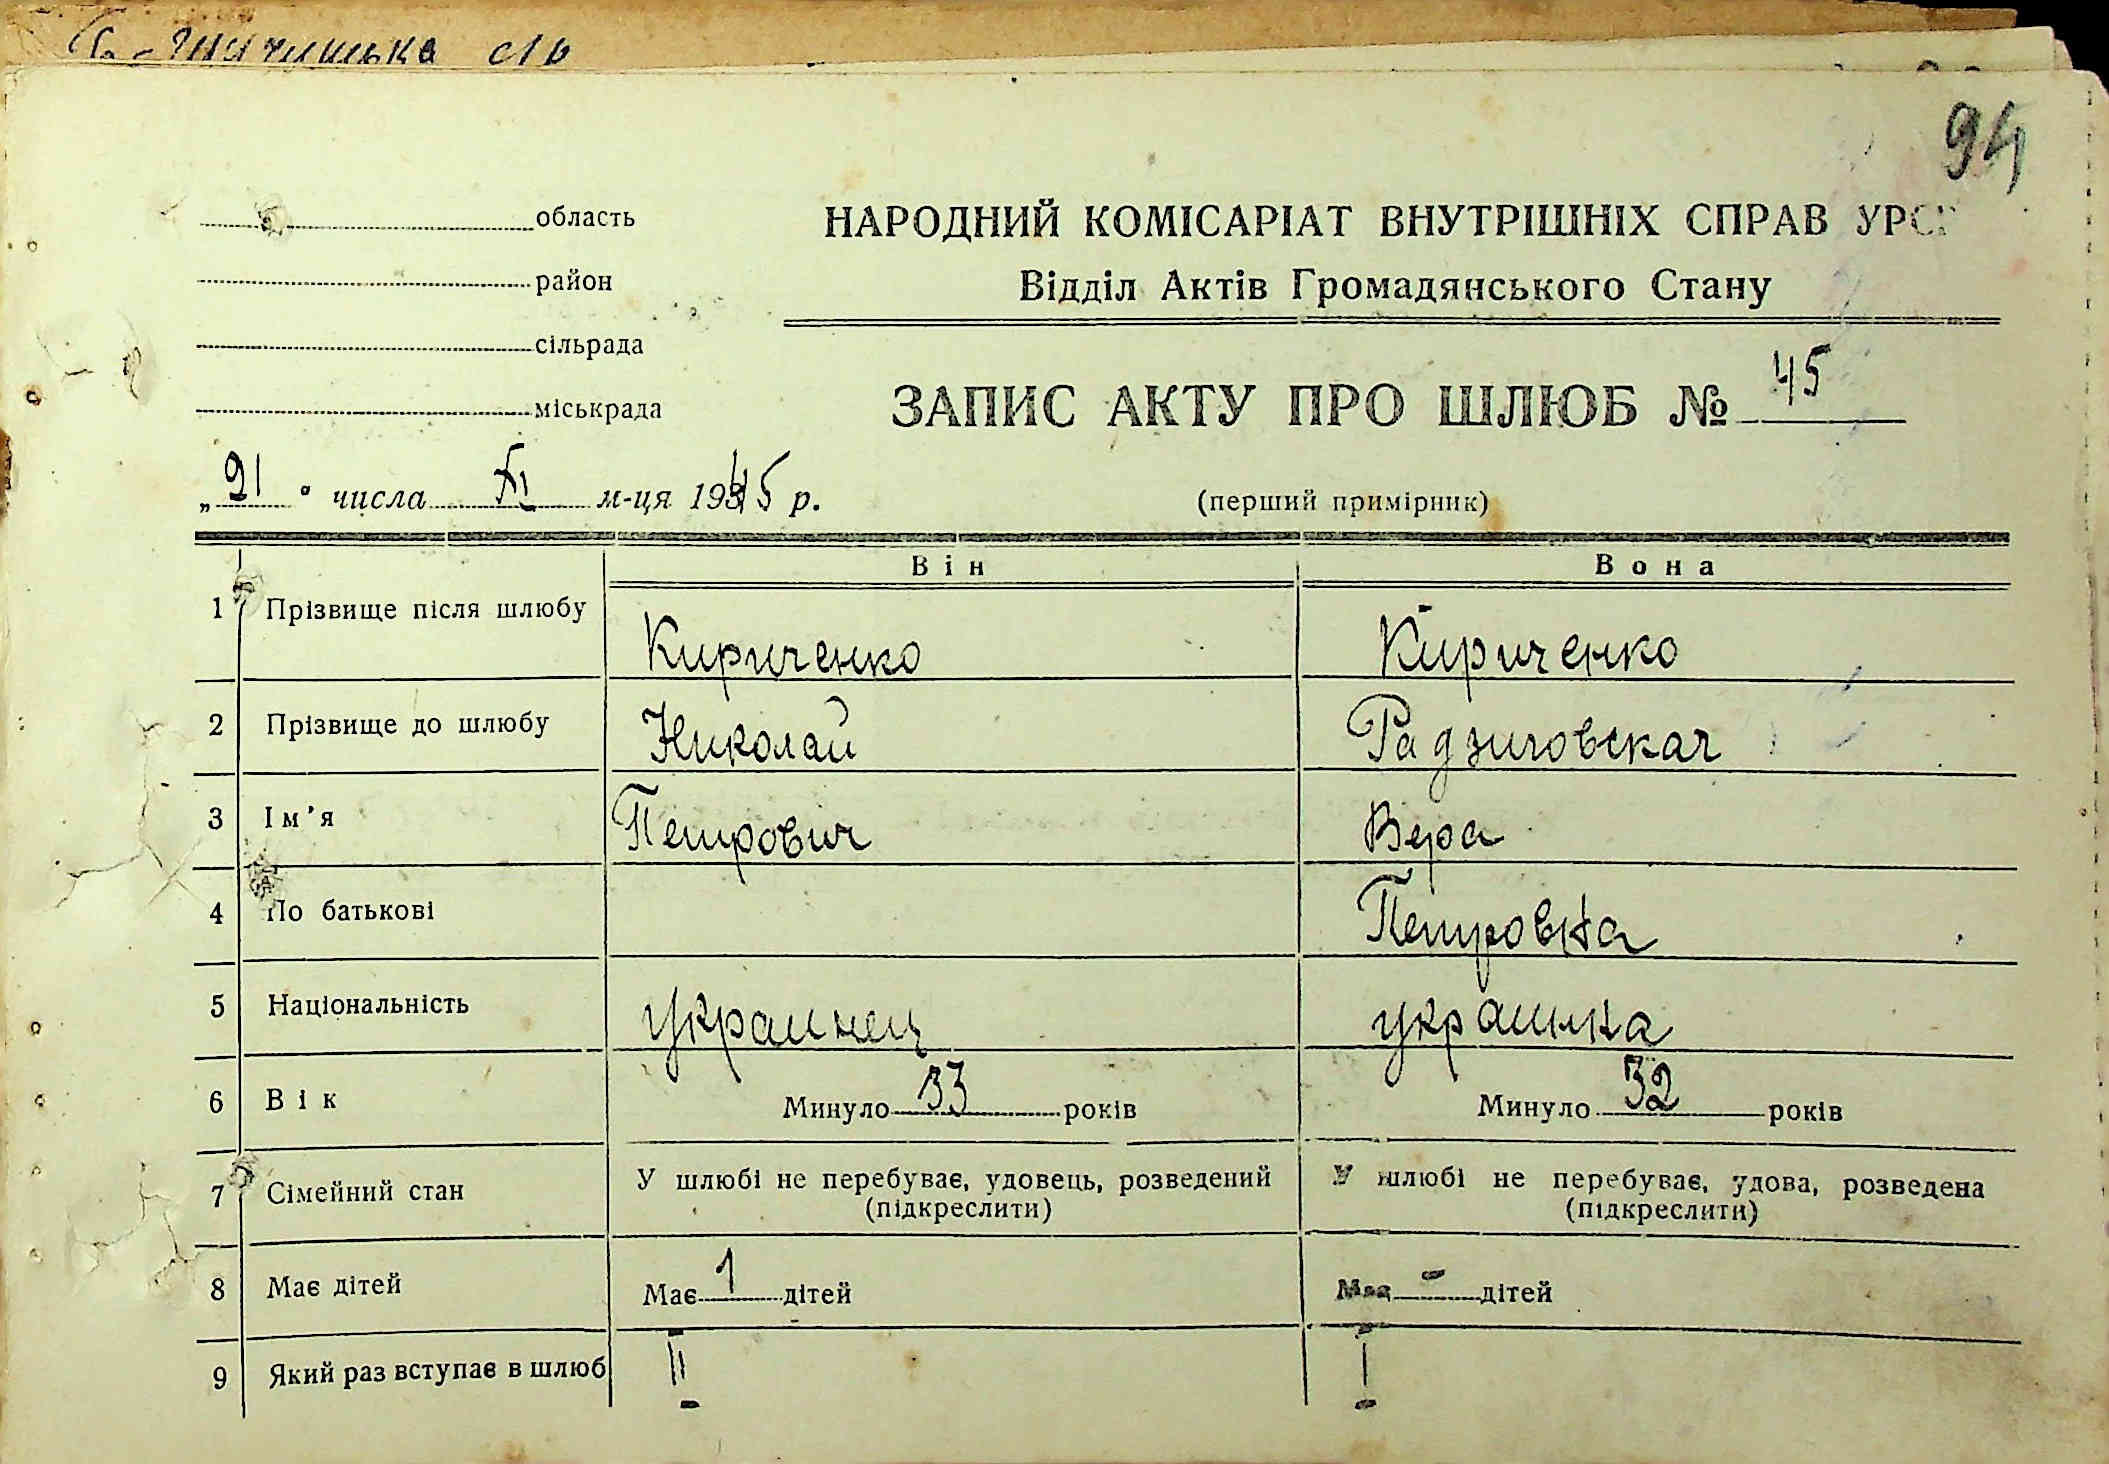 94
область
район
сільрада
міськрада
НАРОДНИЙ КОМІСАРІАТ ВНУТРІШНІХ СПРАВ УРСР
Відділ Актів Громадянського Стану
ЗАПИС АКТУ ПРО ШЛЮБ № 45
(перший примірник)
„21" числа XI м-ця 1945 р.
Він Вона
1 Прізвище після шлюбу Кириченко Кириченко
2 Прізвище до шлюбу Николай Радзиховская
3 Ім'я Петрович Вера
4 По батькові Петровна
5 Національність украинец украинка
6 Вік Минуло 33 років Минуло 32 років
7 Сімейний стан У шлюбі не перебуває, удовець, розведений У шлюбі не перебуває, удова, розведена
(підкреслити) (підкреслити)
8 Має дітей Має 1 дітей Має - дітей
9 Який раз вступає в шлюб II I